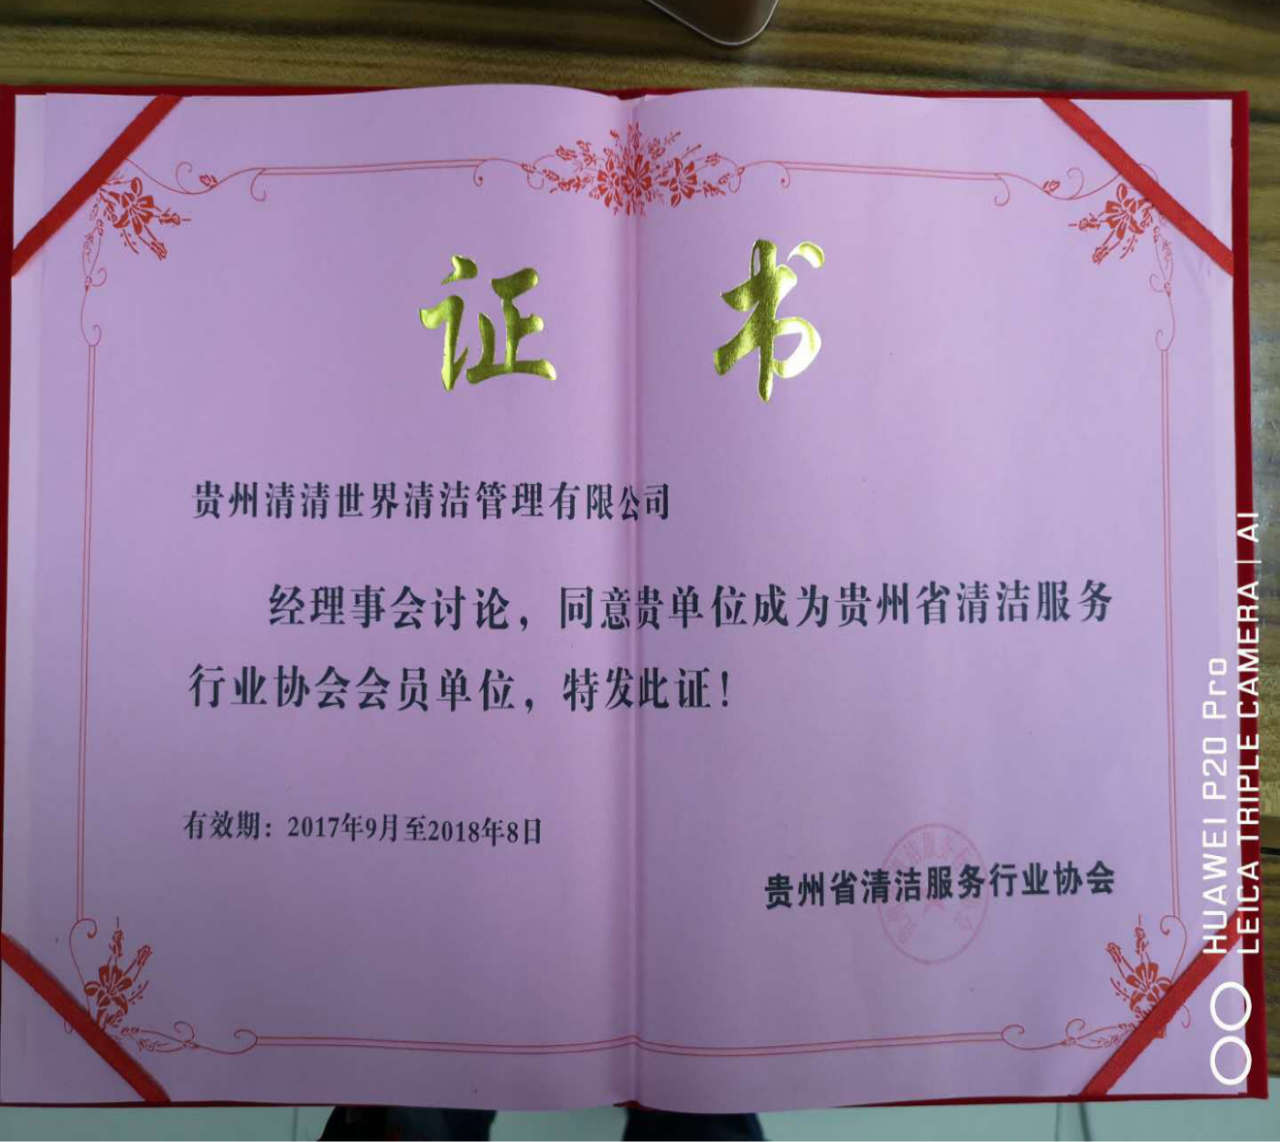 证书
贵州清清世界清洁管理有限公司
经理事会讨论，同意贵单位成为贵州省清洁服务
行业协会会员单位，特发此证！
有效期：2017年9月至2018年8日
贵州省清洁服务行业协会
HUAWEI P20 Pro
LEICA TRIPLE CAMERA | AI